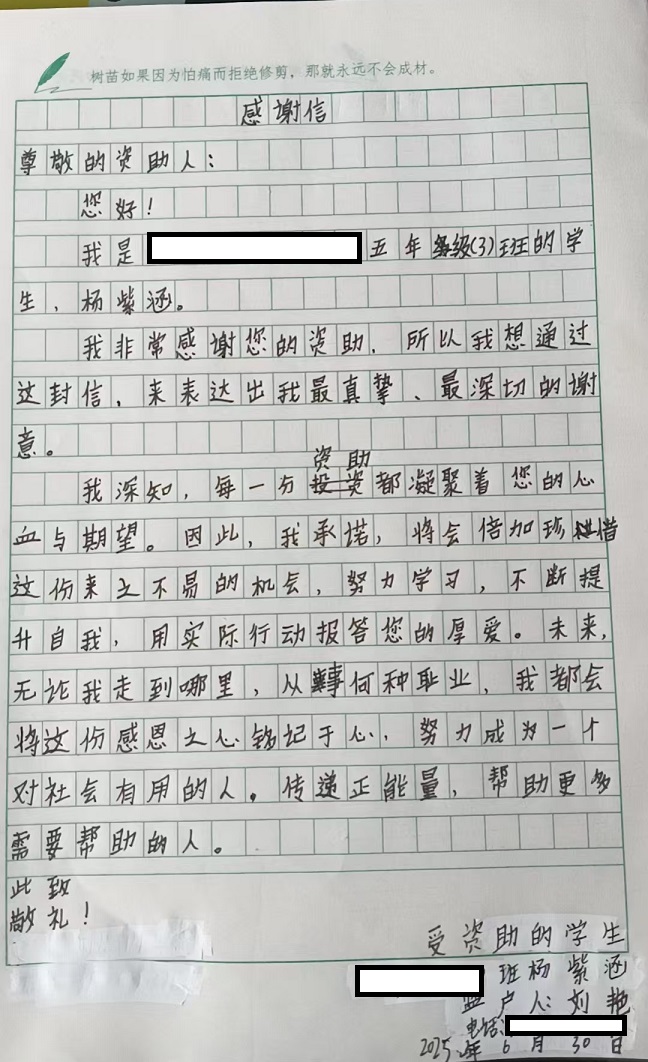 树苗如果因为怕痛而拒绝修剪，那就永远不会成材。
感谢信
尊敬的资助人：
您好！
我是 五年级(3)班的学
生，杨紫涵。
我非常感谢您的资助，所以我想通过
这封信，来表达出我最真挚、最深切的谢
意。
资助
我深知，每一份投资都凝聚着您的心
血与期望。因此，我承诺，将会倍加珍惜
这份来之不易的机会，努力学习，不断提
升自我，用实际行动报答您的厚爱。未来，
无论我走到哪里，从事何种职业，我都会
将这份感恩之心铭记于心，努力成为一个
对社会有用的人。传递正能量，帮助更多
需要帮助的人。
此致
敬礼！
受资助的学生
班杨紫涵
监户人：刘艳
电话：
2025年6月30日